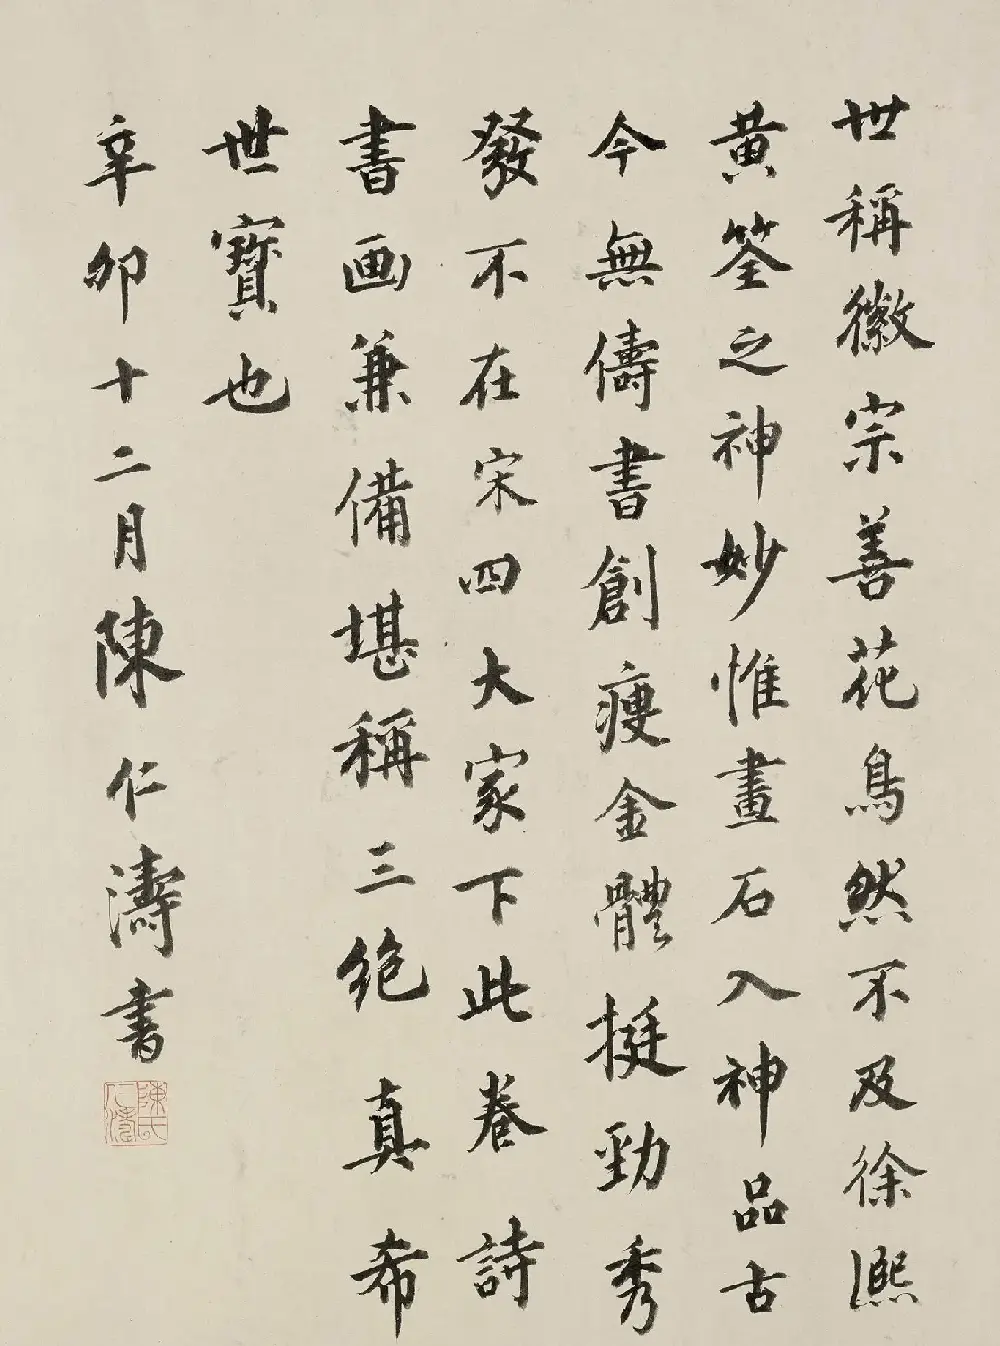 世稱徽宗善花鳥然不及徐熙
黄筌之神妙惟畫石入神品古
今無儔書創瘦金體挺勁秀
發不在宋四大家下此卷詩
書画兼備堪稱三絶真希
世寶也
辛卯十二月陳仁濤書
陳氏仁濤